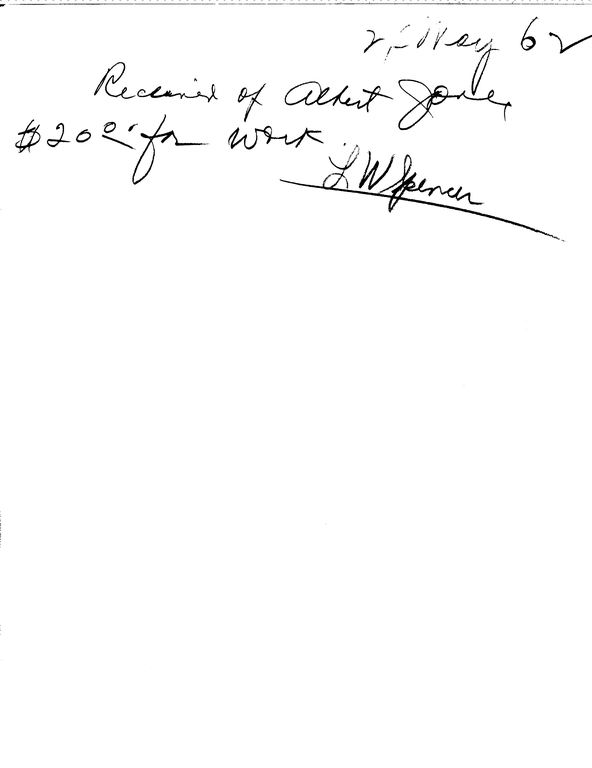 May 62
Received of Albert Jones
$20 00 for work.
L W Spencer